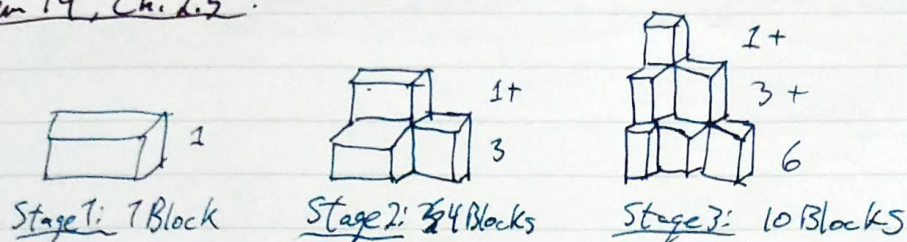 19, Ch. 2.2.
1+
1+
3 +
1
3
6
Stage 1: 1 Block
Stage 2: 4 Blocks
Stage 3: 10 Blocks